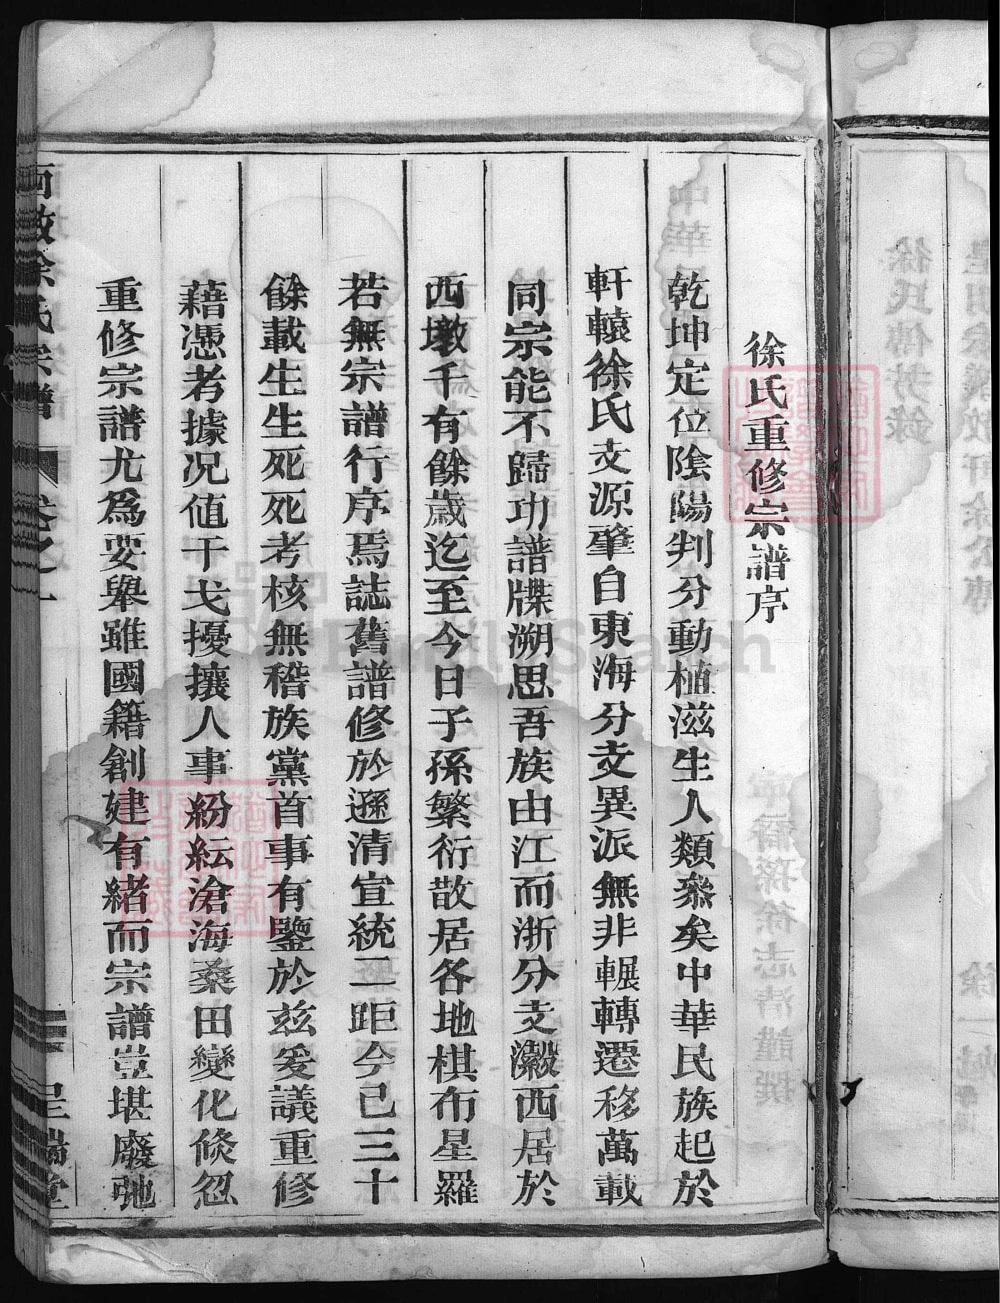 徐氏重修宗譜序
乾坤定位陰陽判分動植滋生人類繁矣中華民族起於
軒轅徐氏支源肇自東海分支異派無非輾轉遷移萬載
同宗能不歸功譜牒溯思吾族由江而浙分支瀫西居於
西墩千有餘歲迄至今日子孫繁衍散居各地棋布星羅
若無宗譜行序焉誌舊譜修於遜清宣統二距今已三十
餘載生生死死考核無稽族黨首事有鑒於玆爰議重修
藉憑考據况值干戈擾攘人事紛紜滄海桑田變化倏忽
重修宗譜尤為要舉雖國籍創建有緒而宗譜豈堪廢弛
西墩徐氏宗譜 卷之一
FamilySearch